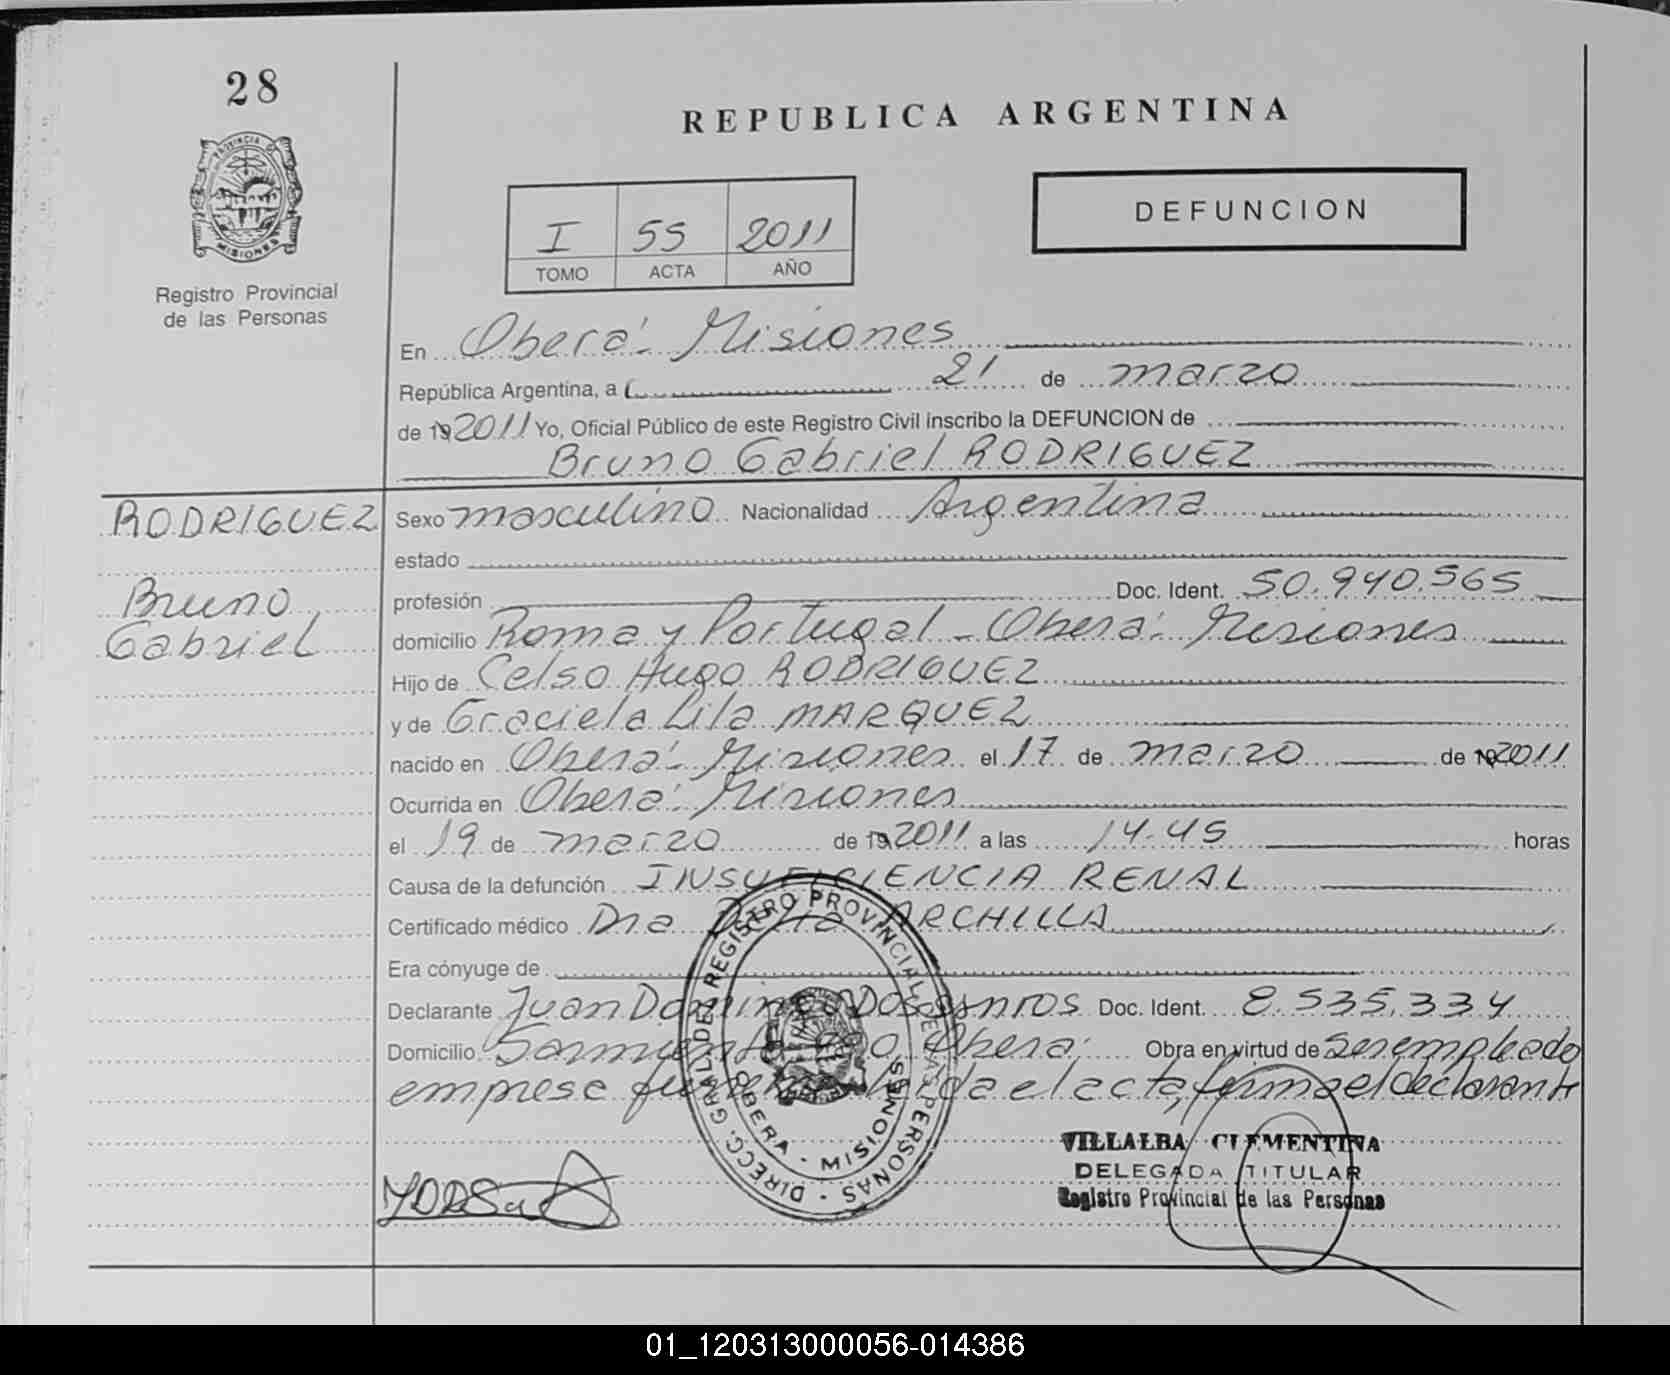 28
REPUBLICA ARGENTINA
PROVINCIA DE
MISIONES
Registro Provincial
de las Personas
I 55 2011
TOMO ACTA AÑO
DEFUNCION
En Oberá - Misiones
República Argentina, a 21 de marzo
de 192011 Yo, Oficial Público de este Registro Civil inscribo la DEFUNCION de
Bruno Gabriel RODRIGUEZ
RODRIGUEZ
Bruno
Gabriel
Sexo masculino Nacionalidad Argentina
estado
profesión Doc. Ident. 50.940.565
domicilio Roma y Portugal - Oberá - Misiones
Hijo de Celso Hugo RODRIGUEZ
y de Graciela Lila MARQUEZ
nacido en Oberá - Misiones el 17 de marzo de 192011
Ocurrida en Oberá - Misiones
el 19 de marzo de 192011 a las 14.45 horas
Causa de la defunción INSUFICIENCIA RENAL
Certificado médico Dra ARCHILLA
Era cónyuge de
Declarante Juan Domingo Dos Santos Doc. Ident. 8.535.334
Domicilio Sarmiento Oberá Obra en virtud de ser empleado
empresa leida el acta, firma el declarante
DIRECC. GRAL. DEL REGISTRO PROVINCIAL DE LAS PERSONAS
OBERA - MISIONES
VILLALBA CLEMENTINA
DELEGADA TITULAR
Registro Provincial de las Personas
01_120313000056-014386